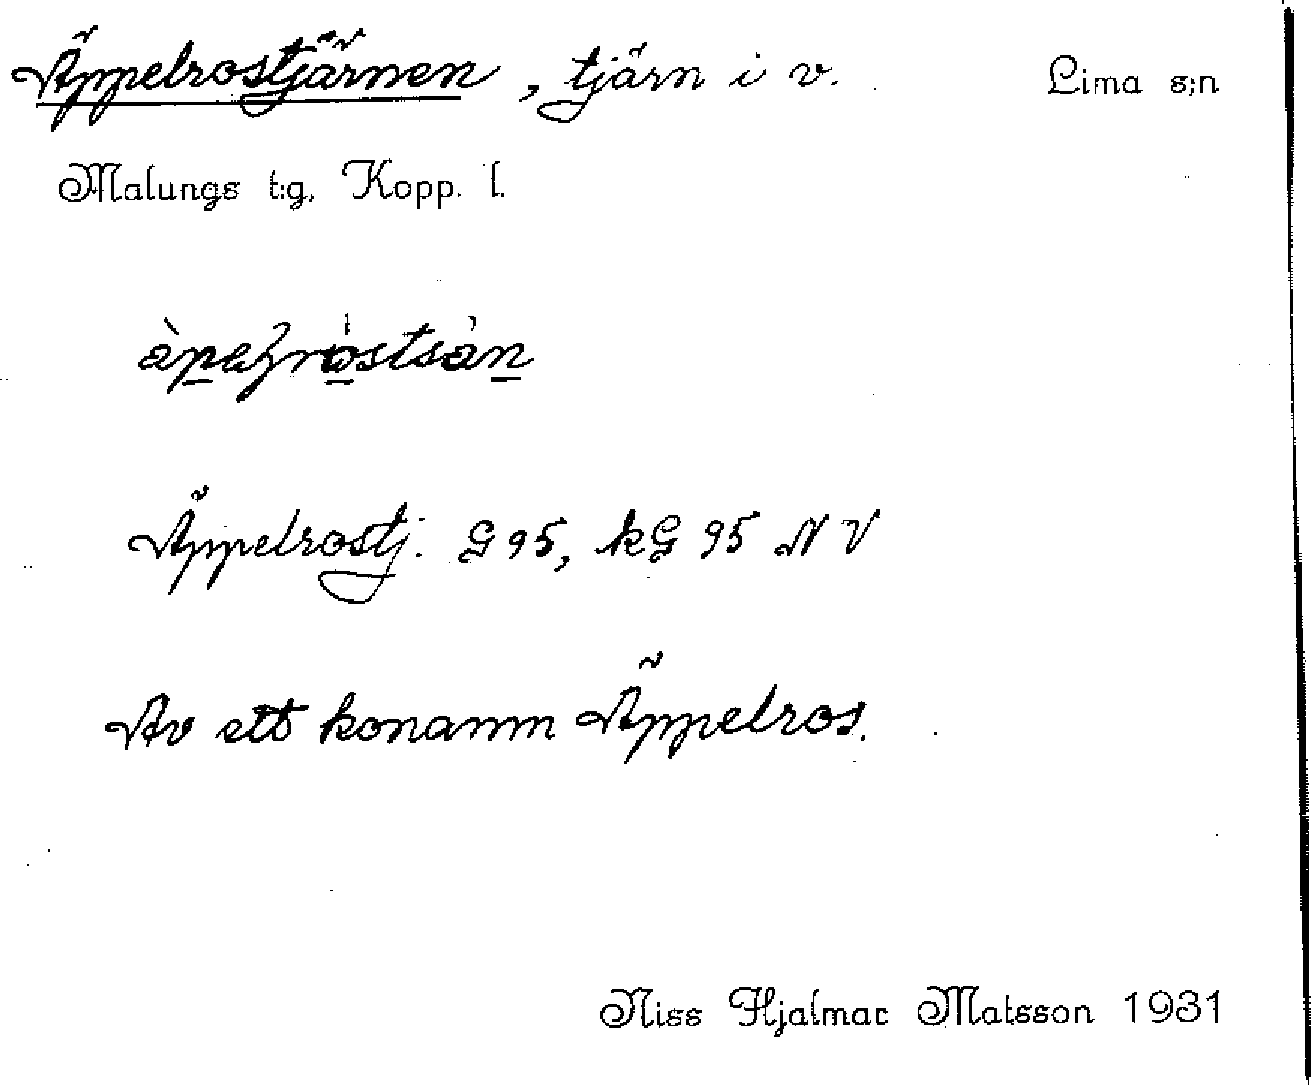 Äppelrostjärnen, tjärn i v. Lima s:n
Malungs t:g, Kopp. l.
Äppelrostj. G 95, kG 95 NV
Av ett konamn Äppelros.
Niss Hjalmar Matsson 1931